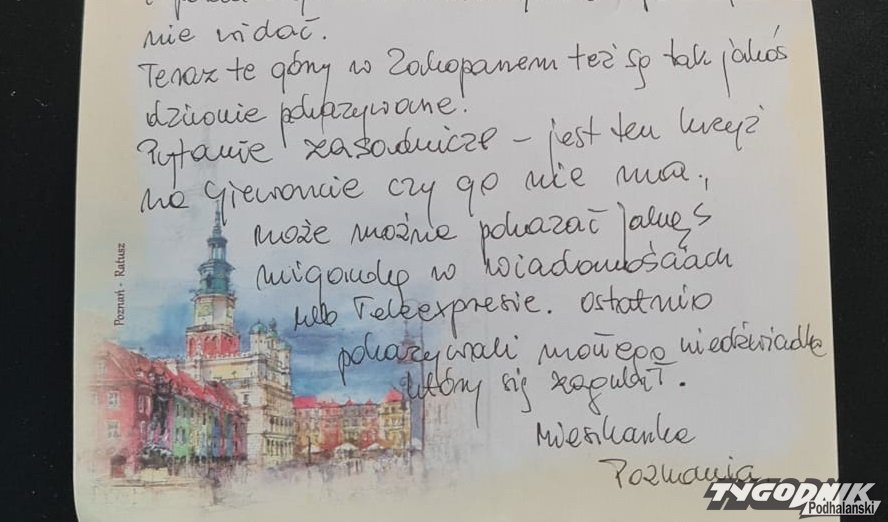 nie widać.
Teraz te góry w Zakopanem też są tak jakoś
dziwnie pokazywane.
Pytanie zasadnicze – jest ten krzyż
na Giewoncie czy go nie ma.,
może można pokazać jakąś
migawkę w wiadomościach
lub Teleexpresie. ostatnio
pokazywali małego niedźwiadka
który się zagubił.
Mieszkanka
Poznania
Poznań - Ratusz
TYGODNIK
Podhalański